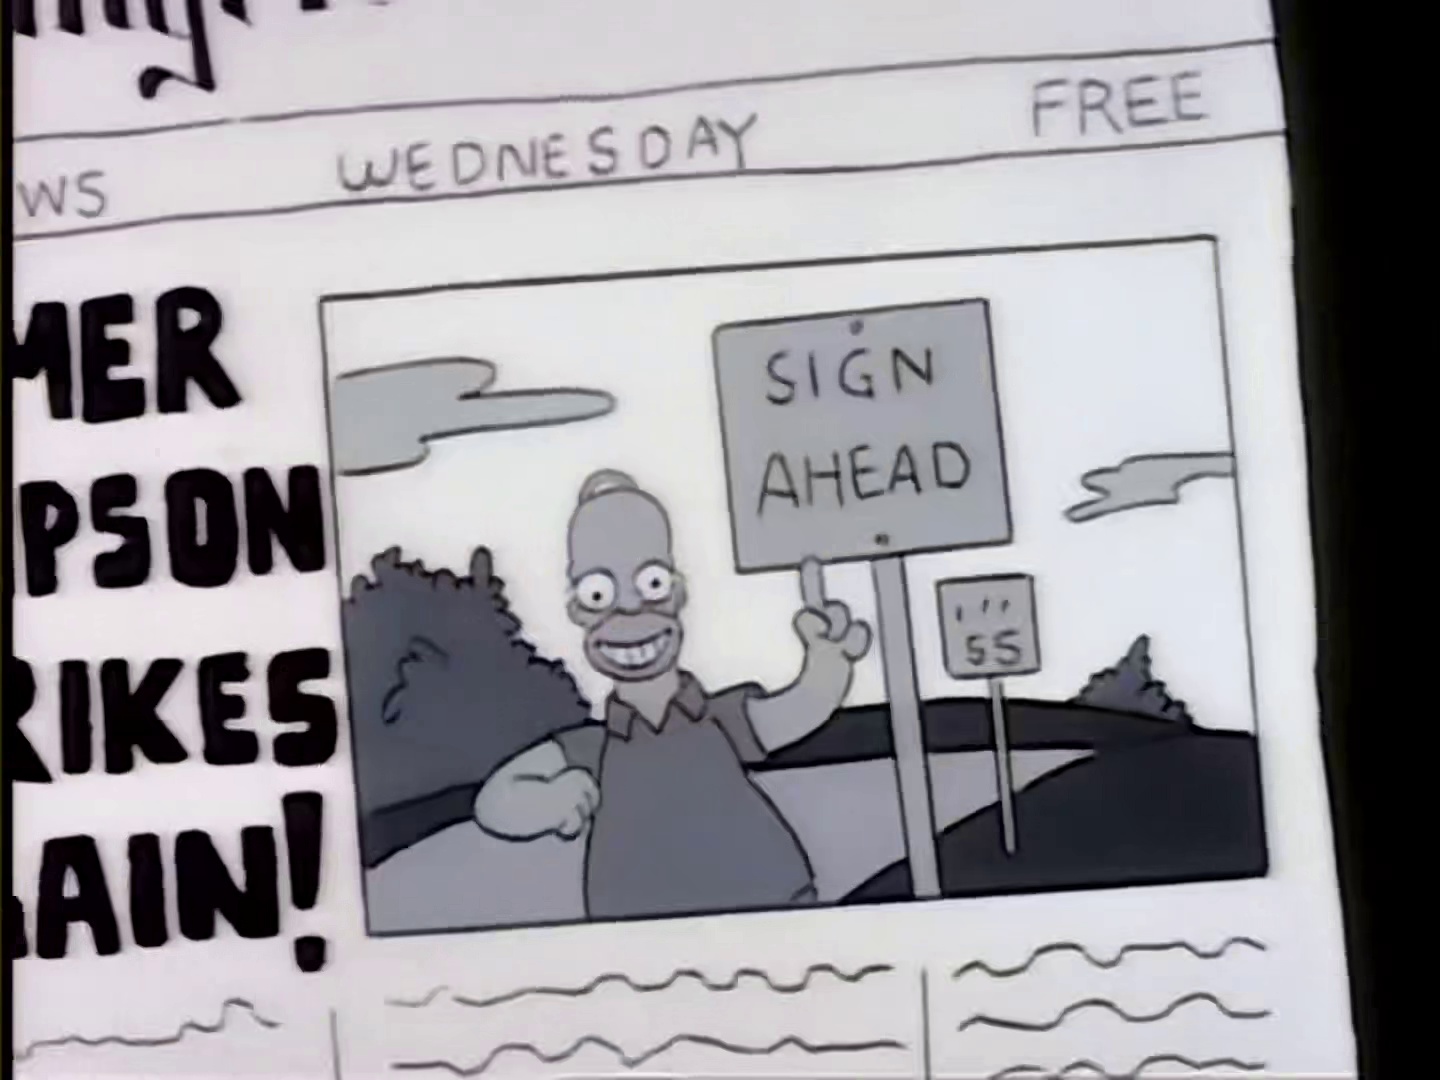 WS WEDNESDAY FREE
MER
PSON
RIKES
AIN!
SIGN
AHEAD
55